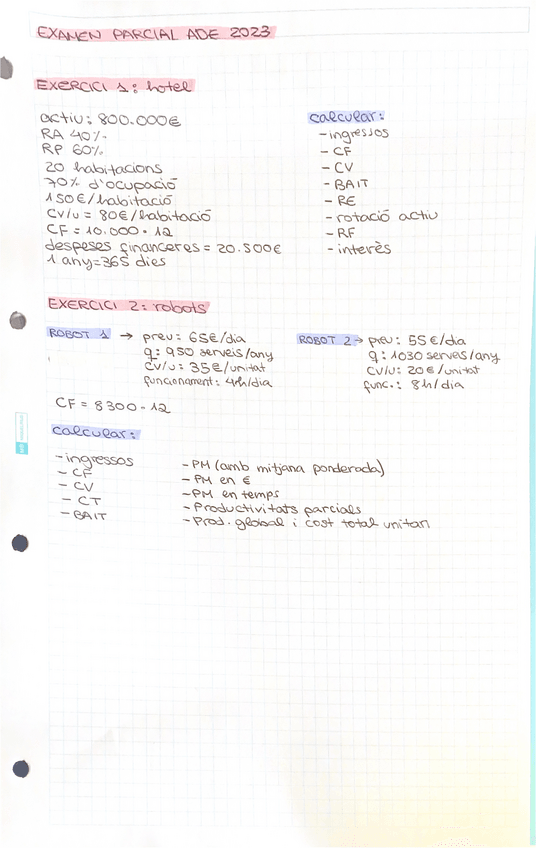 EXAMEN PARCIAL ADE 2023
EXERCICI 1: hotel
actiu: 800.000€
RA 40%
RP 60%
20 habitacions
70% d'ocupació
150€/habitació
CV/u = 80€/habitació
CF = 10.000 · 12
despeses financeres = 20.500€
1 any = 365 dies
calcular:
- ingressos
- CF
- CV
- BAIT
- RE
- rotació actiu
- RF
- interès
EXERCICI 2: robots
ROBOT 1 → preu: 65€/dia
q: 950 serveis/any
CV/U: 35€/unitat
funcionament: 4h/dia
ROBOT 2 → preu: 55€/dia
q: 1030 serveis/any
CV/U: 20€/unitat
func.: 8h/dia
CF = 8300 · 12
calcular:
- ingressos
- CF
- CV
- CT
- BAIT
- PM (amb mitjana ponderada)
- PM en €
- PM en temps
- Productivitats parcials
- Prod. global i cost total unitari